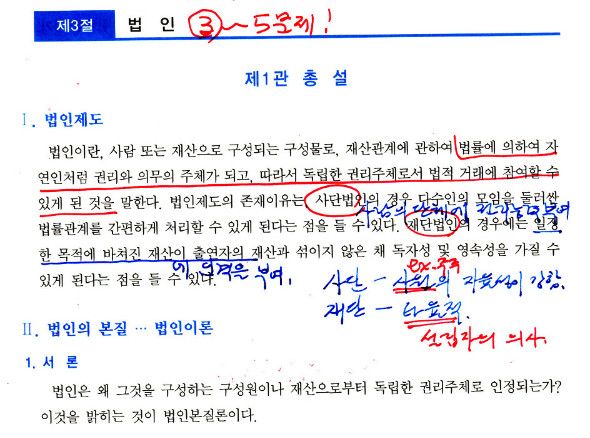 제3절 법 인 ③~5문제!
제1관 총 설
Ⅰ. 법인제도
법인이란, 사람 또는 재산으로 구성되는 구성물로, 재산관계에 관하여 법률에 의하여 자
연인처럼 권리와 의무의 주체가 되고, 따라서 독립한 권리주체로서 법적 거래에 참여할 수
있게 된 것을 말한다. 법인제도의 존재이유는 사단법인의 경우 다수인의 모임을 둘러싼
사람의 단체에 권리능력 부여
법률관계를 간편하게 처리할 수 있게 된다는 점을 들 수 있다. 재단법인의 경우에는 일정
한 목적에 바쳐진 재산이 출연자의 재산과 섞이지 않은 채 독자성 및 영속성을 가질 수
에 인격을 부여.
있게 된다는 점을 들 수 있다.
ex-주주
사단 - 사원의 자율성이 강함.
재단 - 타율적.
설립자의 의사.
Ⅱ. 법인의 본질 … 법인이론
1. 서 론
법인은 왜 그것을 구성하는 구성원이나 재산으로부터 독립한 권리주체로 인정되는가?
이것을 밝히는 것이 법인본질론이다.